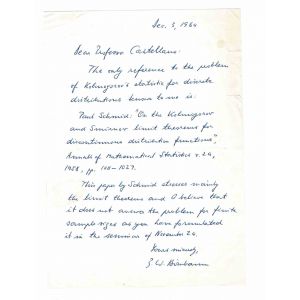 Dec. 3, 1960
Dear Professor Castellan:
The only reference to the problem
of Kolmogorov's statistic for discrete
distributions known to me is:
Paul Schmid: "On the Kolmogorov
and Smirnov limit theorems for
discontinuous distribution functions",
Annals of Mathematical Statistics v. 29,
1958, pp. 1011-1027.
This paper by Schmid stresses mainly
the limit theorems and I believe that
it does not answer the problem for finite
sample sizes as you have formulated
it in the seminar of November 24.
Yours sincerely,
Z. W. Birnbaum